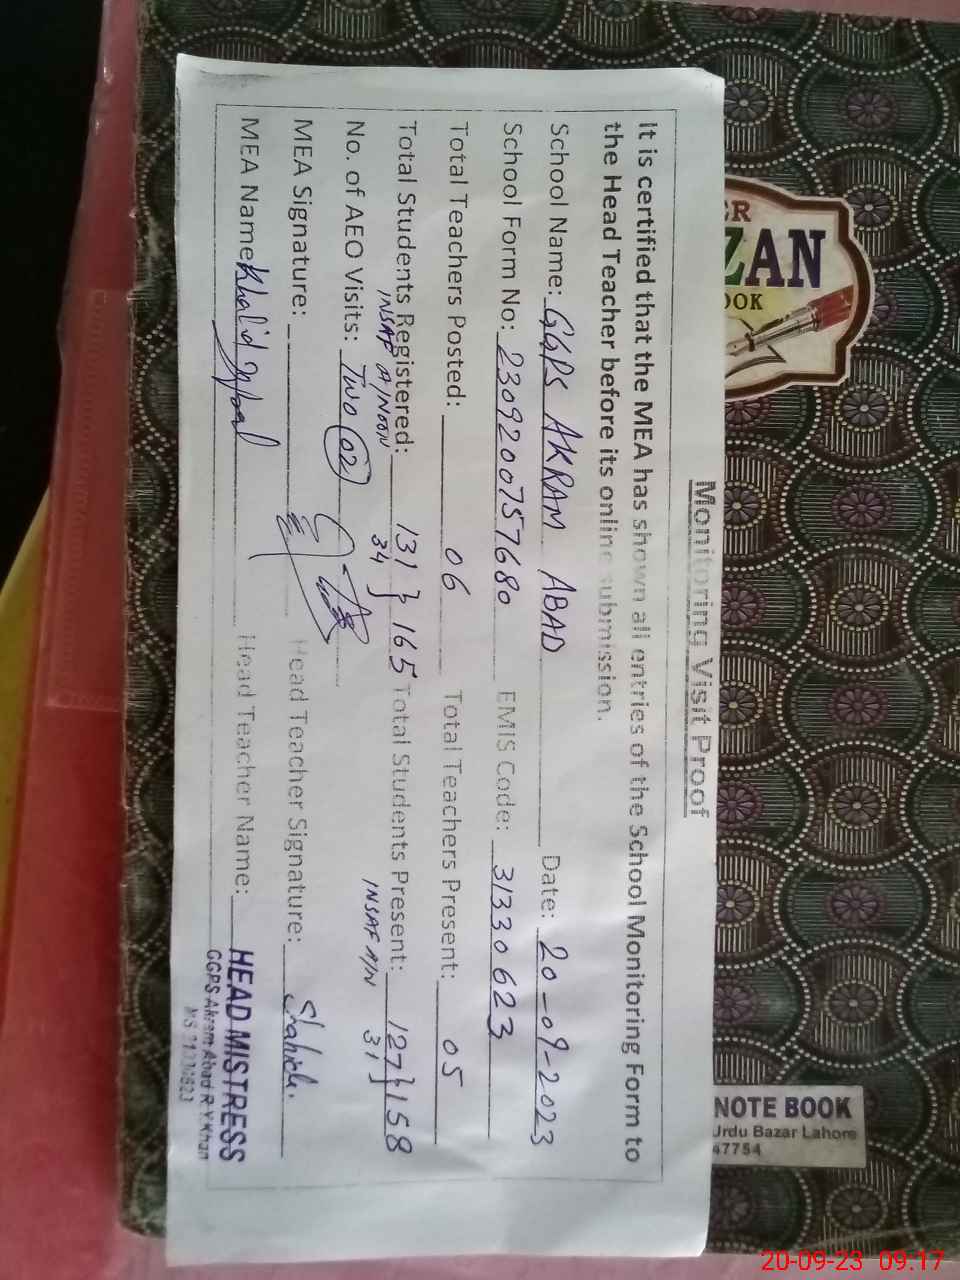 Monitoring Visit Proof
It is certified that the MEA has shown all entries of the School Monitoring Form to
the Head Teacher before its online submission.
School Name: GGPS AKRAM ABAD Date: 20-09-2023
School Form No: 2309200757680 EMIS Code: 31330623
Total Teachers Posted: 06 Total Teachers Present: 05
Total Students Registered: 131 } 165 Total Students Present: 127 } 158
INSAF A/NOON 34 INSAF A/N 31
No. of AEO Visits: Two 02
MEA Signature: Head Teacher Signature: Shahida.
MEA Name: Khalid Iqbal Head Teacher Name: HEAD MISTRESS
GGPS Akram Abad R.Y.Khan
ZAN
OOK
NOTE BOOK
Urdu Bazar Lahore
47754
20-09-23 09:17